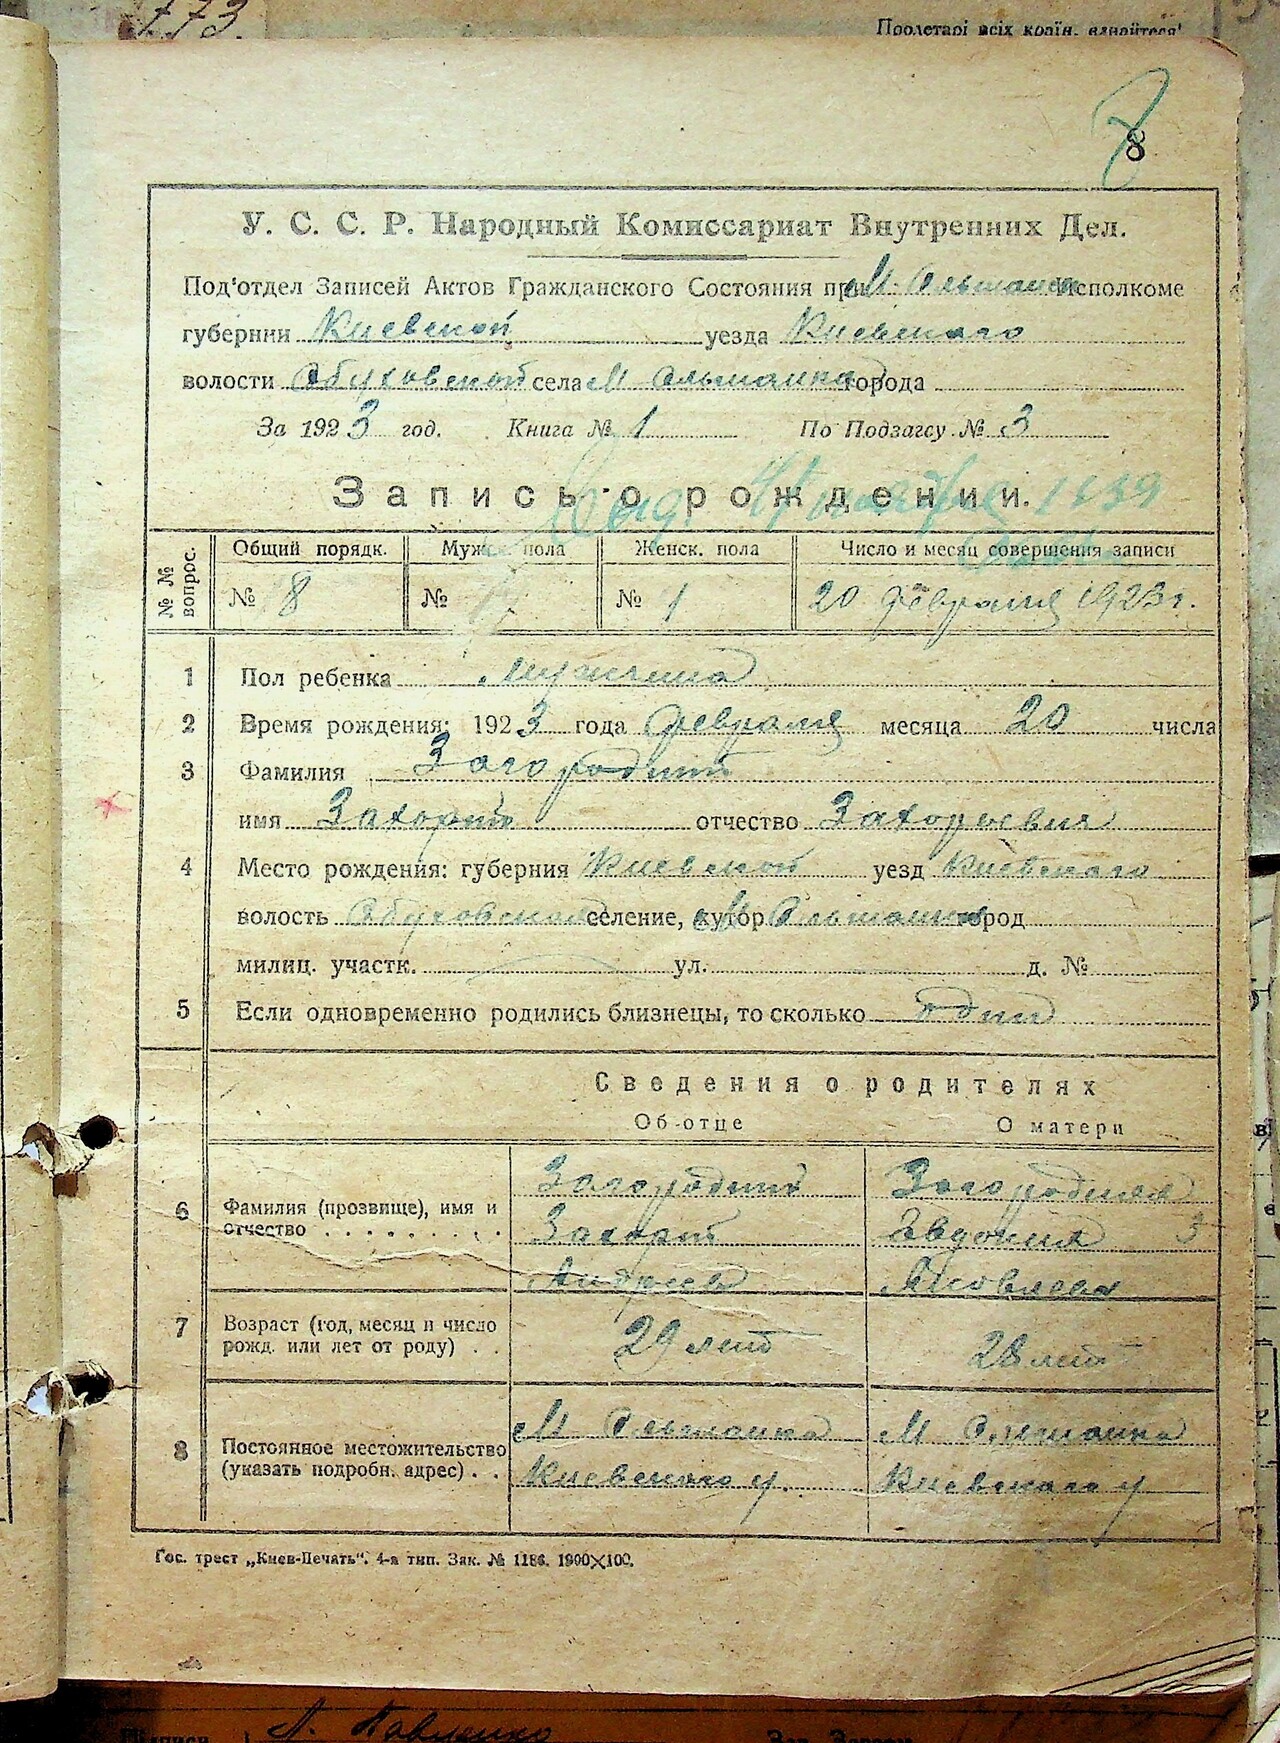 773.
Пролетарі всіх країн, єднайтеся!
8
У. С. С. Р. Народный Комиссариат Внутренних Дел.
Под'отдел Записей Актов Гражданского Состояния при М. Ольшанск Исполкоме
губернии Киевской уезда Киевского
волости Обуховской села М Ольшанка города
За 1923 год. Книга № 1 По Подзагсу № 3
Запись о рождении.
1939
№№ вопрос.
Общий порядк. Мужск. пола Женск. пола Число и месяц совершения записи
№ 8 № № 1 20 февраля 1923 г.
1 Пол ребенка мужчина
2 Время рождения: 1923 года февраля месяца 20 числа
3 Фамилия Загородний
имя Захарий отчество Захарьевич
4 Место рождения: губерния Киевской уезд Киевского
волость Обуховской селение, хутор М Ольшанка город
милиц. участк. ул. д. №
5 Если одновременно родились близнецы, то сколько один
Сведения о родителях
Об отце О матери
6 Фамилия (прозвище), имя и отчество
Загородний Загородняя
Захарий Евдокия З
Андреев Яковлева
7 Возраст (год, месяц и число рожд. или лет от роду)
29 лет 28 лет
8 Постоянное местожительство (указать подробн. адрес)
М Ольшанка М Ольшанка
Киевского у. Киевского у
Гос. трест „Киев-Печать“. 4-я тип. Зак. № 1186. 1900×100.